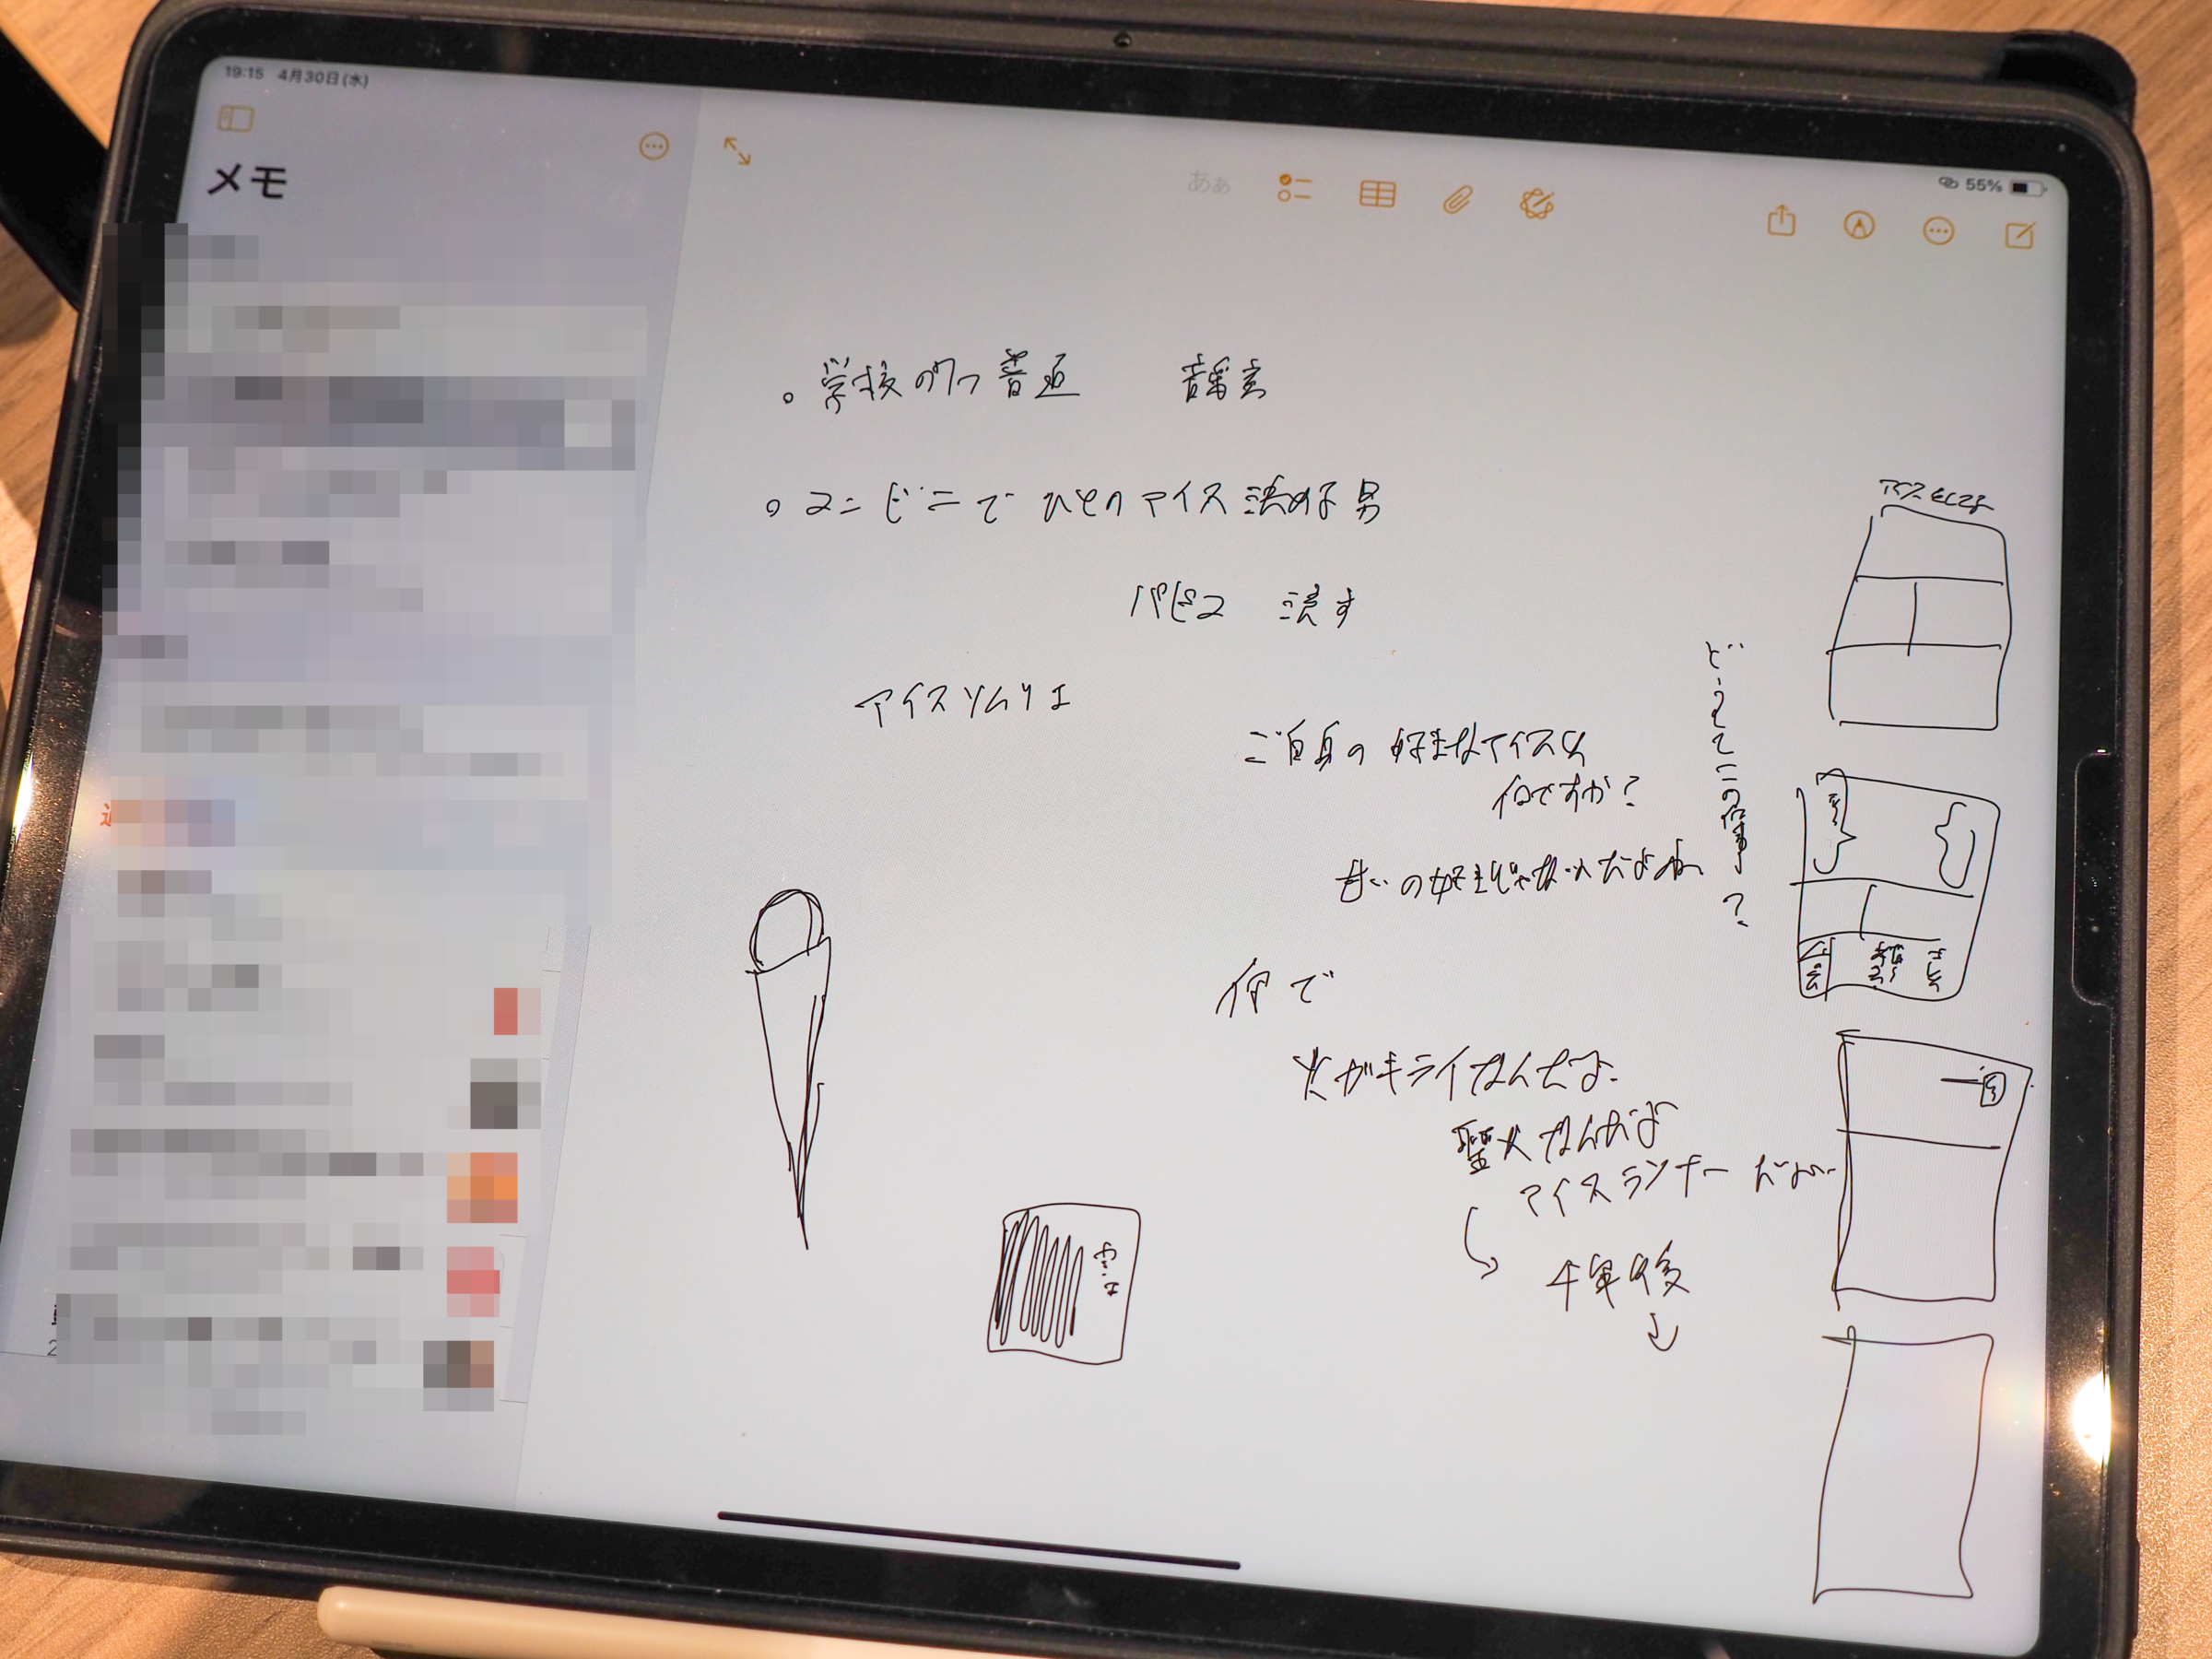 19:15 4月30日(水)
55%
メモ
あぁ
。学校の7つ普通 音楽室
。コンビニで ひとのアイス決める男
パピコ 渡す
アイスソムリエ
ご自身の好きなアイスは
何ですか?
どうしてこの仕事?
甘いの好きじゃないんだよね
何で
火がキライなんだよ
聖火なんだよ
アイスランナーだよ
千年後